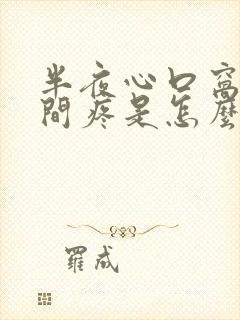 半夜心口窩
間疼是怎麼
羅成